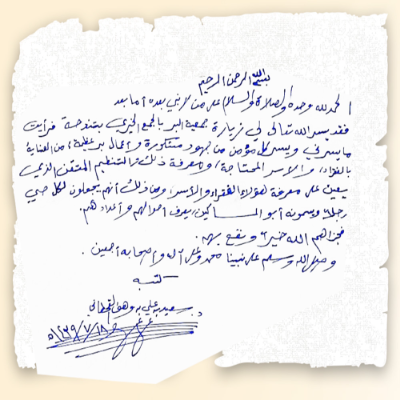 بسم الله الرحمن الرحيم
الحمد لله وحده والصلاة والسلام على من لا نبي بعده أما بعد
فقد يسر الله تعالى لي زيارة جمعية البر بالمجمع الخيري فرأيت
ما يسرني ويسر كل مؤمن من جهود مشكورة وأعمال بر عظيمة، من العناية
بالفقراء والأسر المحتاجة، ومعرفة ذلك بالتنظيم المتقن الذي
يعين على معرفة هؤلاء الفقراء والأسر، ومن ذلك أنهم يجعلون لكل حي
رجلاً ويسمونه أبو المساكين، يعرف أحوالهم وأعدادهم.
فجزاهم الله خيراً ونفع بهم.
وصلى الله وسلم على نبينا محمد وعلى آله وأصحابه أجمعين.
كتبه
د. سعيد بن علي بن وهف القحطاني
١٤٢٩/٧/١٨هـ